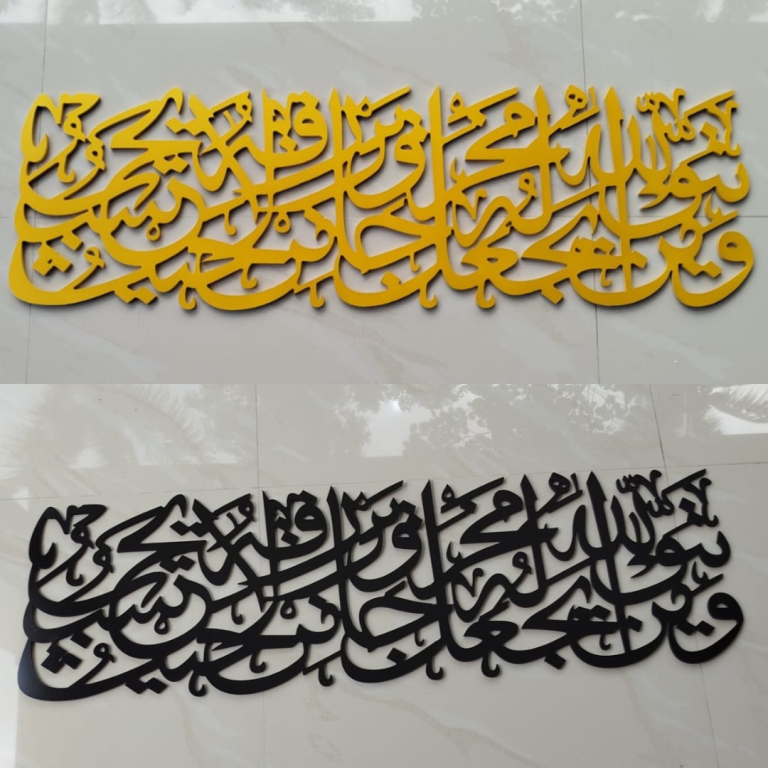 ومن يتق الله يجعل له مخرجا ويرزقه من حيث لا يحتسب
ومن يتق الله يجعل له مخرجا ويرزقه من حيث لا يحتسب